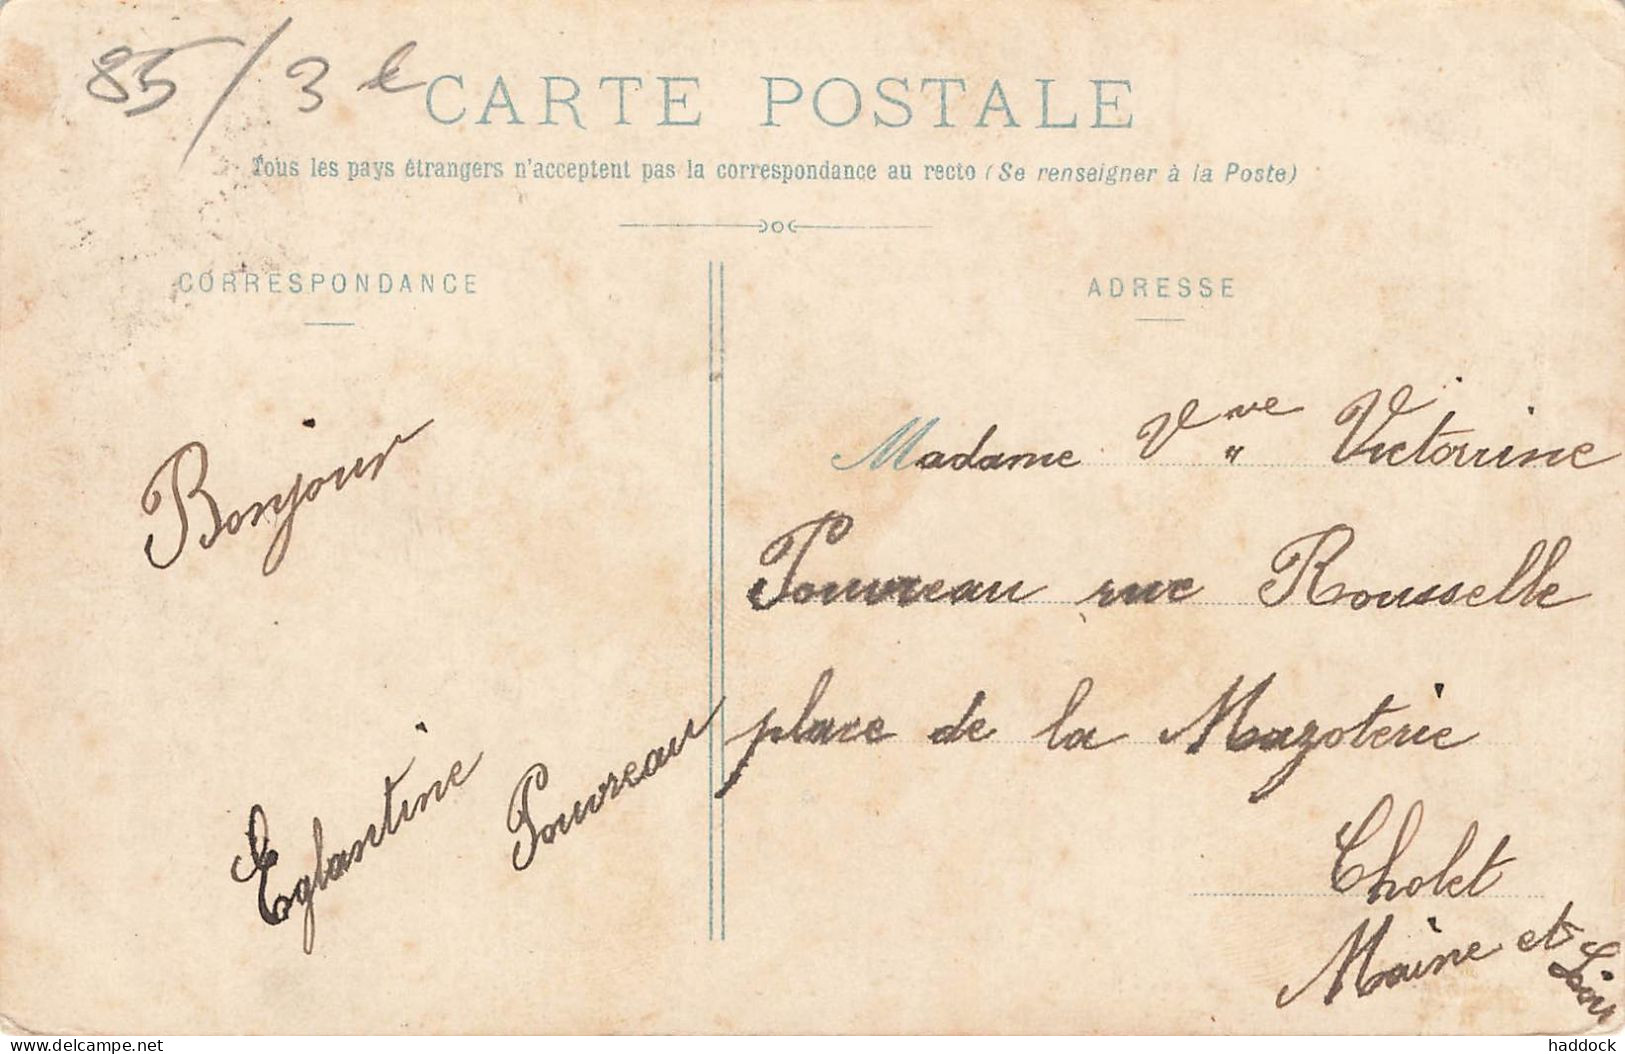 85/3e
CARTE POSTALE
Tous les pays étrangers n'acceptent pas la correspondance au recto (Se renseigner à la Poste)
CORRESPONDANCE
Bonjour
Eglantine Pouvreau
ADRESSE
Madame Vve Victorine
Pouvreau rue Rousselle
place de la Mazoterie
Cholet
Maine et Loir
www.delcampe.net
haddock